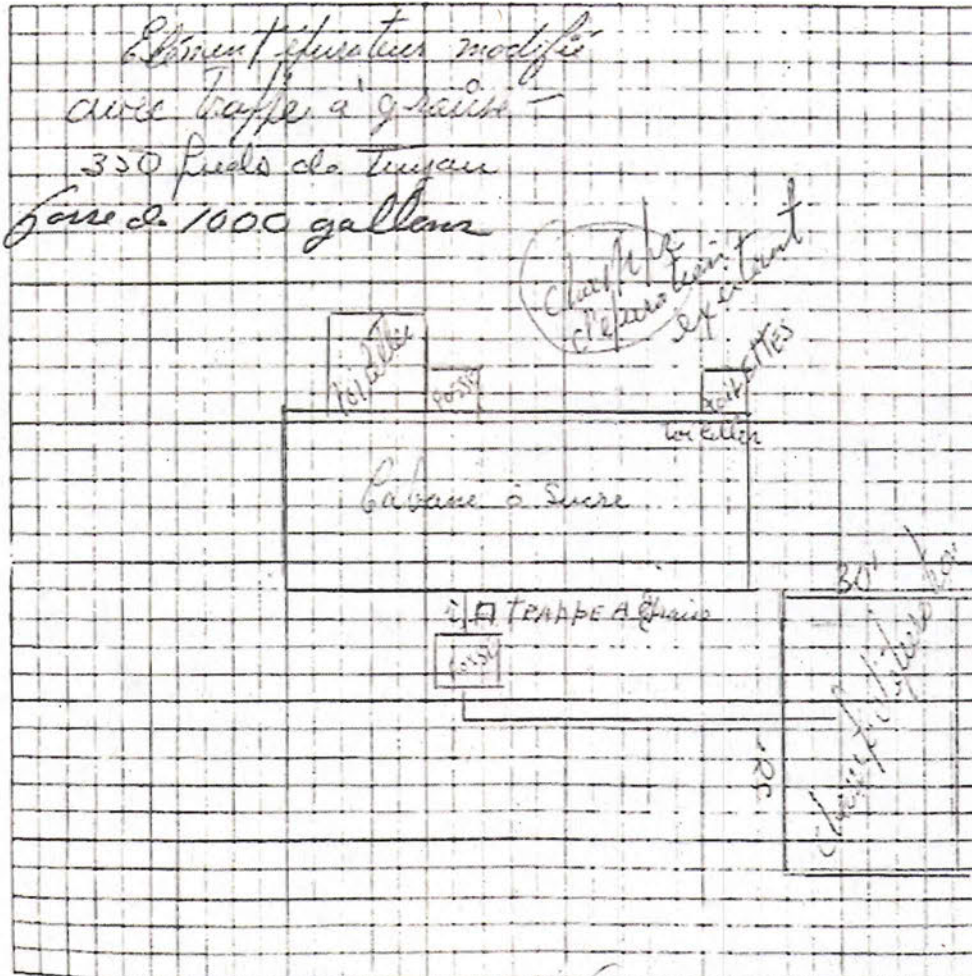 Elément épurateur modifié
avec Trappe à graisse -
350 pieds de Tuyau
fosse de 1000 gallons
champ
d'épuration
existant
toilettes
fosse
TOILETTES
toilettes
Cabane à Sucre
TRAPPE A graisse
fosse
30'
50'
champ d'épuration